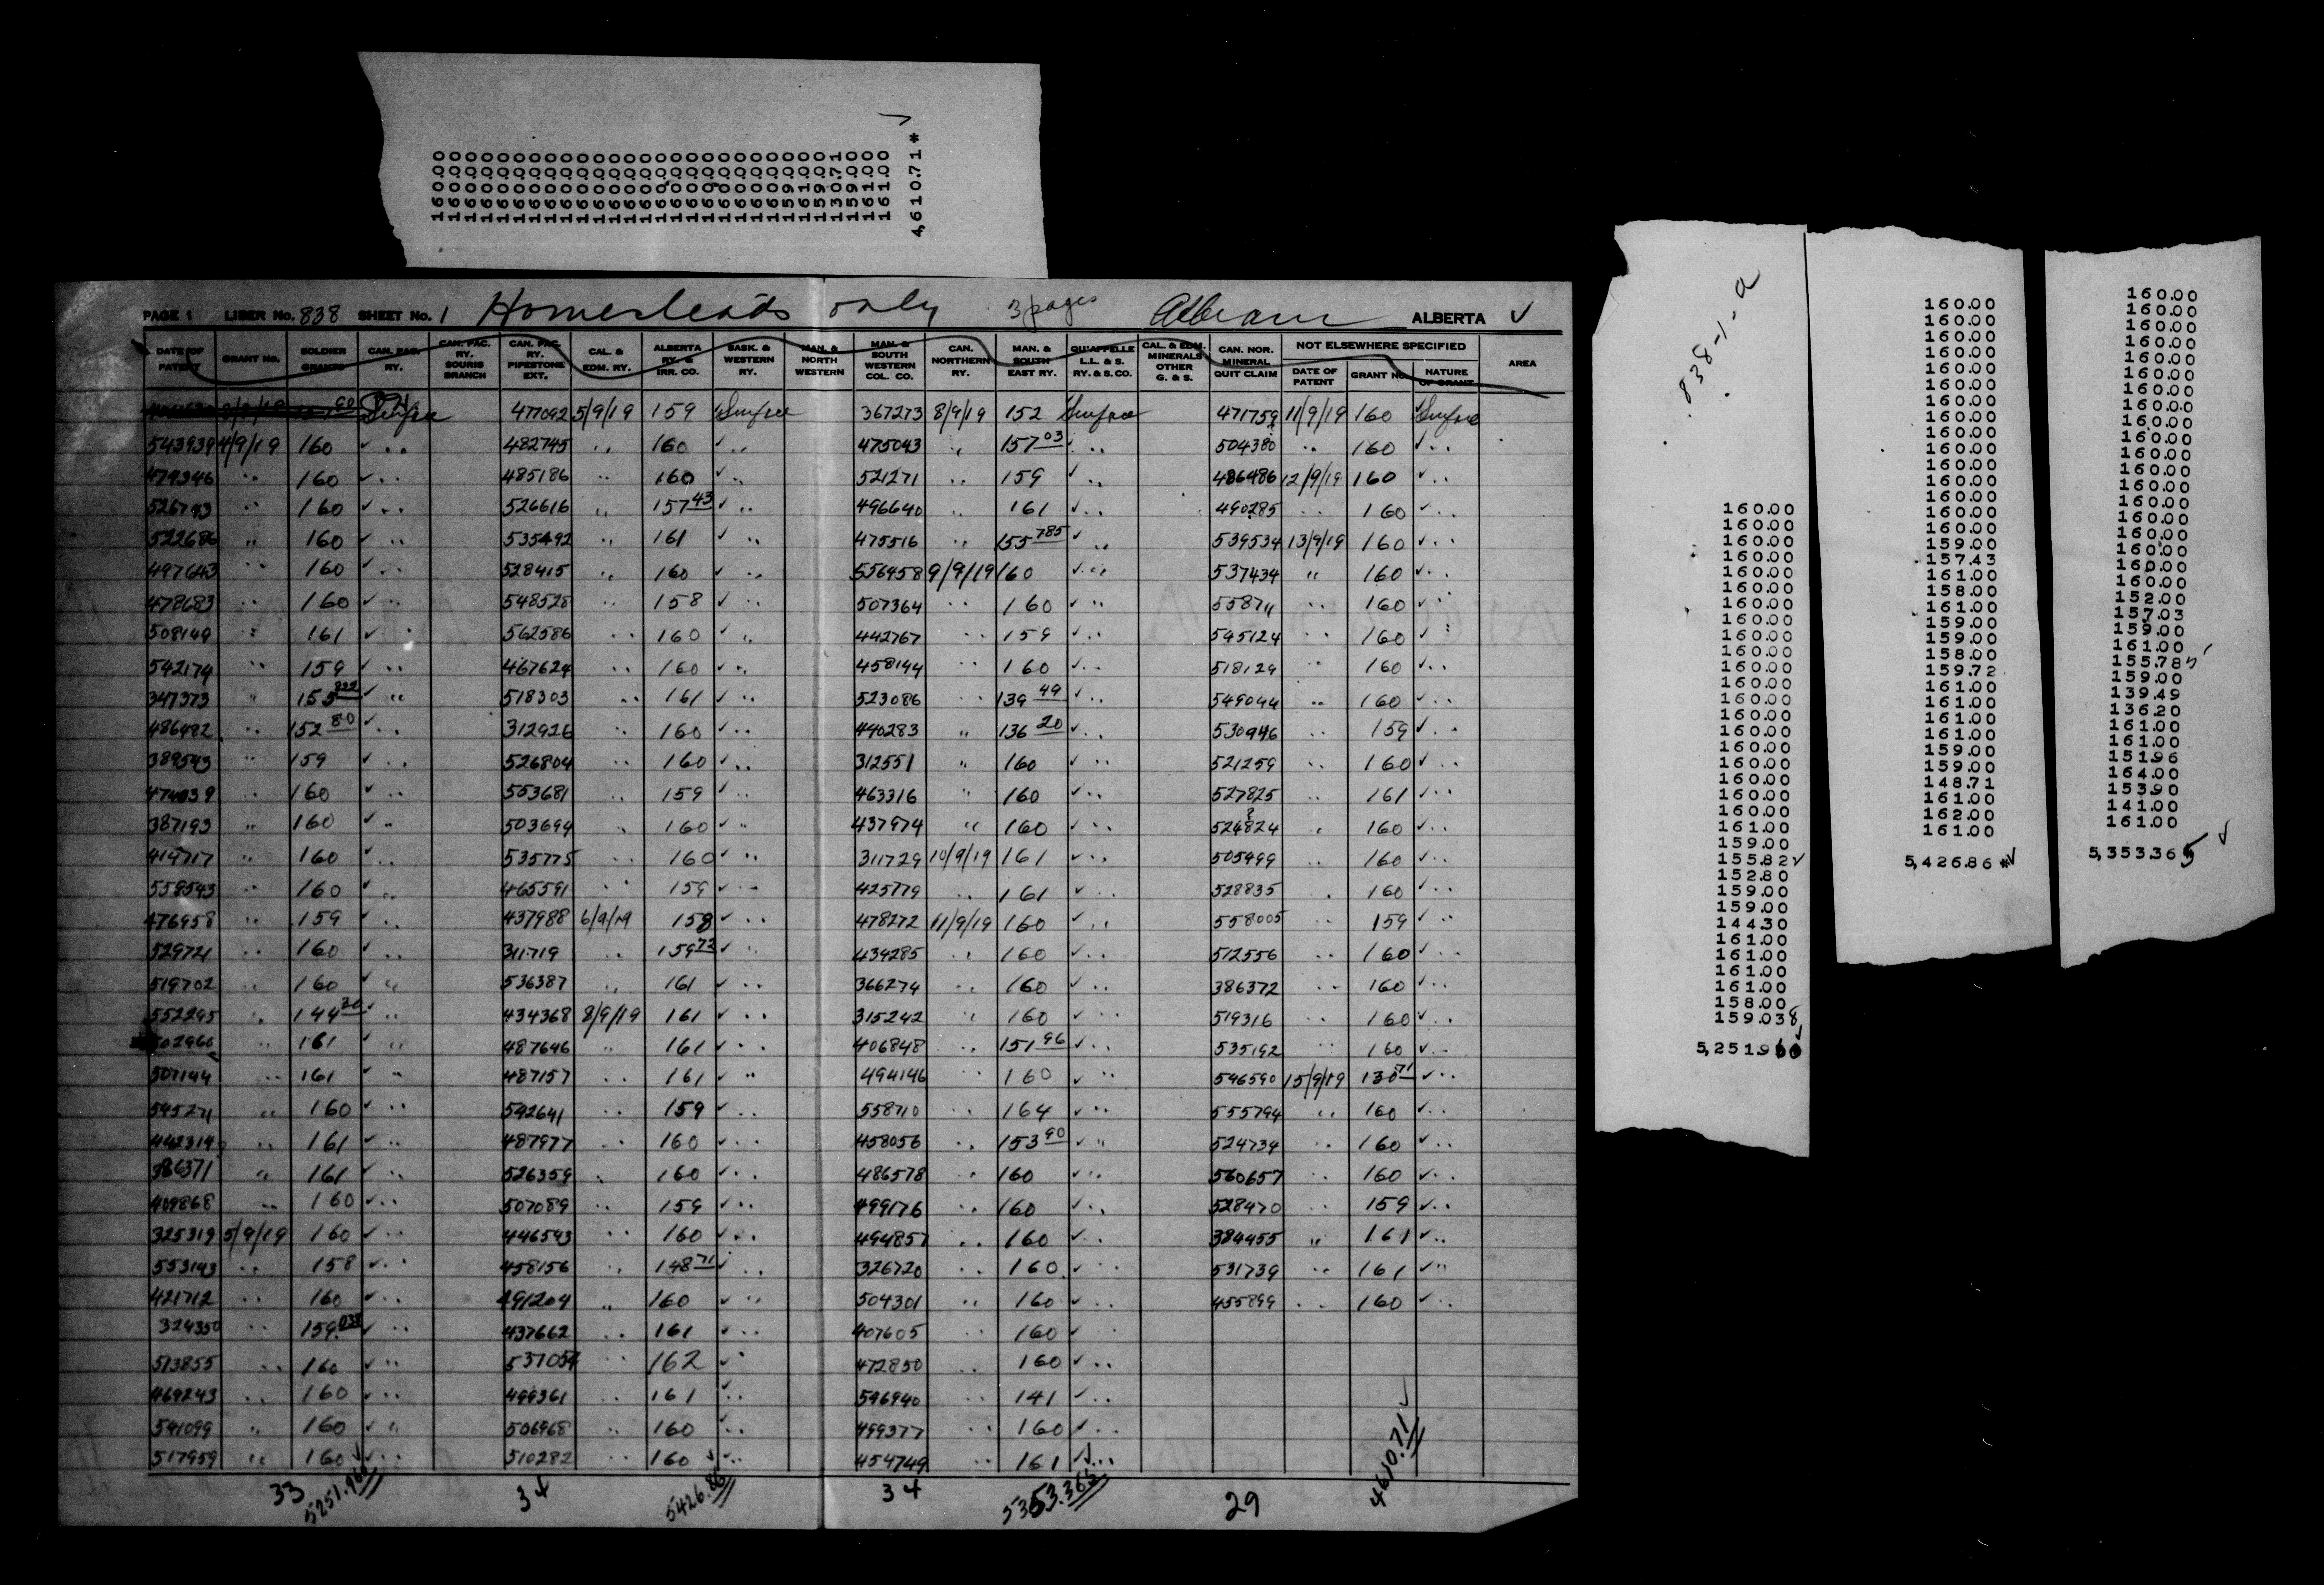 160.00
160.00
160.00
160.00
160.00
160.00
160.00
160.00
160.00
160.00
160.00
160.00
160.00
160.00
160.00
160.00
160.00
160.00
160.00
160.00
160.00
160.00
159.00
161.00
159.00
130.71
159.00
161.00
161.00
4,610.71 *
PAGE 1 LIBER No. 838 SHEET No. 1 Homesteads only 3 pages ALBERTA ✓
DATE OF PATENT GRANT NO. SOLDIER GRANTS CAN. PAC. RY. CAN. PAC. RY. SOURIS BRANCH CAN. PAC. RY. PIPESTONE EXT. CAL. & EDM. RY. ALBERTA RY. & IRR. CO. SASK. & WESTERN RY. MAN. & NORTH WESTERN MAN. & SOUTH WESTERN COL. CO. CAN. NORTHERN RY. MAN. & SOUTH EAST RY. QU'APPELLE L.L. & S. RY. & S. CO. CAL. & EDM. MINERALS OTHER G. & S. CAN. NOR. MINERAL QUIT CLAIM NOT ELSEWHERE SPECIFIED DATE OF PATENT GRANT NO. NATURE OF GRANT AREA
Surface 477092 5/9/19 159 Surface 367273 8/9/19 152 Surface 471759 11/9/19 160 ✓ Surface
543939 4/9/19 160 ✓ .. 482745 .. 160 ✓ .. 475043 .. 157 03 ✓ .. 504380 .. 160 ✓ ..
479346 .. 160 ✓ .. 485186 .. 160 ✓ .. 521271 .. 159 ✓ .. 486486 12/9/19 160 ✓ ..
526793 .. 160 ✓ .. 526616 .. 157 43 ✓ .. 496640 .. 161 ✓ .. 490285 .. 160 ✓ ..
522686 .. 160 ✓ .. 535492 .. 161 ✓ .. 475516 .. 155 785 ✓ .. 539534 13/9/19 160 ✓ ..
497643 .. 160 ✓ .. 528415 .. 160 ✓ .. 556958 9/9/19 160 ✓ .. 537434 .. 160 ✓ ..
478683 .. 160 ✓ .. 548528 .. 158 ✓ .. 507364 .. 160 ✓ .. 558711 .. 160 ✓ ..
508149 .. 161 ✓ .. 562586 .. 160 ✓ .. 442767 .. 159 ✓ .. 545124 .. 160 ✓ ..
542174 .. 159 ✓ .. 467624 .. 160 ✓ .. 458144 .. 160 ✓ .. 518129 .. 160 ✓ ..
347373 .. 155 ✓ .. 518303 .. 161 ✓ .. 523086 .. 139 49 ✓ .. 549044 .. 160 ✓ ..
486482 .. 152 80 ✓ .. 312926 .. 160 ✓ .. 440283 .. 136 20 ✓ .. 530946 .. 159 ✓ ..
389593 .. 159 ✓ .. 526804 .. 160 ✓ .. 312551 .. 160 ✓ .. 521259 .. 160 ✓ ..
474039 .. 160 ✓ .. 553681 .. 159 ✓ .. 463316 .. 160 ✓ .. 527825 .. 161 ✓ ..
387193 .. 160 ✓ .. 503694 .. 160 ✓ .. 437974 .. 160 ✓ .. 524824 .. 160 ✓ ..
414717 .. 160 ✓ .. 535775 .. 160 ✓ .. 311729 10/9/19 161 ✓ .. 505499 .. 160 ✓ ..
558593 .. 160 ✓ .. 465591 .. 159 ✓ .. 425779 .. 161 ✓ .. 528835 .. 160 ✓ ..
476958 .. 159 ✓ .. 437988 6/9/19 158 ✓ .. 478272 11/9/19 160 ✓ .. 558005 .. 159 ✓ ..
529721 .. 160 ✓ .. 311719 .. 159 72 ✓ .. 434285 .. 160 ✓ .. 512556 .. 160 ✓ ..
519702 .. 160 ✓ .. 536387 .. 161 ✓ .. 366274 .. 160 ✓ .. 386372 .. 160 ✓ ..
552295 .. 144 30 ✓ .. 434368 8/9/19 161 ✓ .. 315242 .. 160 ✓ .. 519316 .. 160 ✓ ..
502966 .. 161 ✓ .. 487646 .. 161 ✓ .. 406848 .. 151 96 ✓ .. 535192 .. 160 ✓ ..
507144 .. 161 ✓ .. 487157 .. 161 ✓ .. 494146 .. 160 ✓ .. 546590 15/9/19 130 71 ✓ ..
545271 .. 160 ✓ .. 592641 .. 159 ✓ .. 558710 .. 164 ✓ .. 555794 .. 160 ✓ ..
442319 .. 161 ✓ .. 487977 .. 160 ✓ .. 458056 .. 153 90 ✓ .. 524734 .. 160 ✓ ..
386371 .. 161 ✓ .. 526359 .. 160 ✓ .. 486578 .. 160 ✓ .. 560657 .. 160 ✓ ..
409868 .. 160 ✓ .. 507089 .. 159 ✓ .. 499176 .. 160 ✓ .. 528470 .. 159 ✓ ..
325319 5/9/19 160 ✓ .. 446593 .. 160 ✓ .. 494857 .. 160 ✓ .. 384455 .. 161 ✓ ..
553143 .. 158 ✓ .. 458156 .. 148 71 ✓ .. 326720 .. 160 ✓ .. 531739 .. 161 ✓ ..
421712 .. 160 ✓ .. 491204 .. 160 ✓ .. 504301 .. 160 ✓ .. 455899 .. 160 ✓ ..
324350 .. 159.038 ✓ .. 437662 .. 161 ✓ .. 407605 .. 160 ✓ ..
513855 .. 160 ✓ .. 537054 .. 162 ✓ .. 472850 .. 160 ✓ ..
469243 .. 160 ✓ .. 499361 .. 161 ✓ .. 596940 .. 141 ✓ ..
541099 .. 160 ✓ .. 506968 .. 160 ✓ .. 499377 .. 160 ✓ ..
517959 .. 160 ✓ .. 510282 .. 160 ✓ .. 454749 .. 161 ✓ ..
33 5251.960 34 5426.86 34 5353.365 29 4610.71 ✓
838-1-a
160.00
160.00
160.00
160.00
160.00
160.00
160.00
160.00
160.00
160.00
160.00
160.00
160.00
160.00
160.00
160.00
160.00
160.00
160.00
160.00
161.00
159.00
155.82 ✓
152.80
159.00
159.00
144.30
161.00
161.00
161.00
161.00
158.00
159.038
5,251.960
160.00
160.00
160.00
160.00
160.00
160.00
160.00
160.00
160.00
160.00
160.00
160.00
160.00
160.00
160.00
159.00
157.43
161.00
158.00
161.00
159.00
159.00
158.00
159.72
161.00
161.00
161.00
161.00
159.00
159.00
148.71
161.00
162.00
161.00
5,426.86 * ✓
160.00
160.00
160.00
160.00
160.00
160.00
160.00
160.00
160.00
160.00
160.00
160.00
160.00
160.00
160.00
160.00
160.00
160.00
160.00
152.00
157.03
159.00
161.00
155.78
159.00
139.49
136.20
161.00
161.00
151.96
164.00
153.90
141.00
161.00
5,353.365 ✓